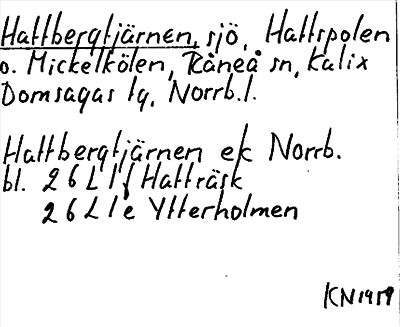 Hattbergtjärnen, sjö, Hattspolen
o. Mickelkölen, Råneå sn, Kalix
Domsagas lg, Norrb.l.
Hattbergtjärnen ek Norrb.
bl. 26L1f Hatträsk
26L1e Ytterholmen
KN1959